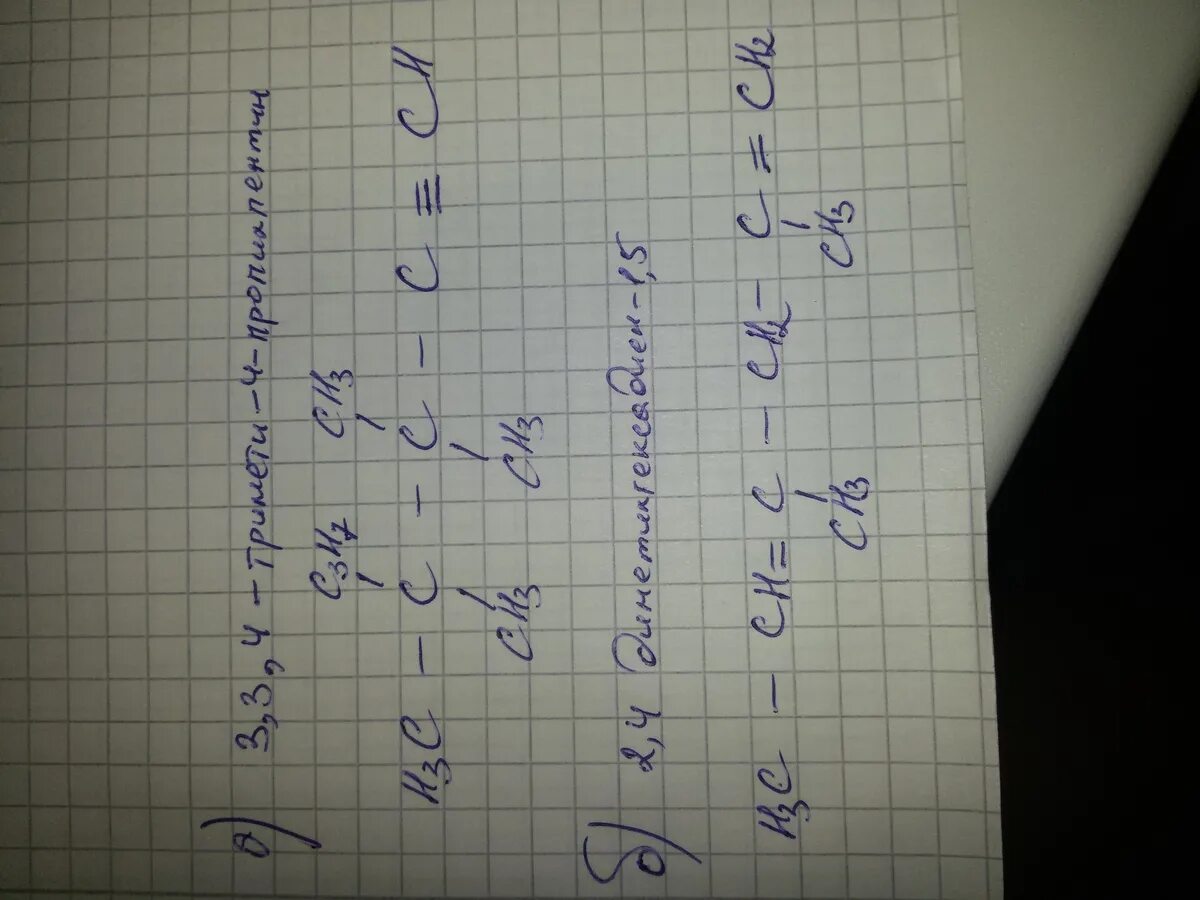 а) 3,3,4 - триметил - 4 - пропилпентин
C3H7 CH3
H3C - C - C - C ≡ CH
CH3 CH3
б) 2,4 диметилгексадиен - 1,5
H3C - CH = C - CH2 - C = CH2
CH3 CH3